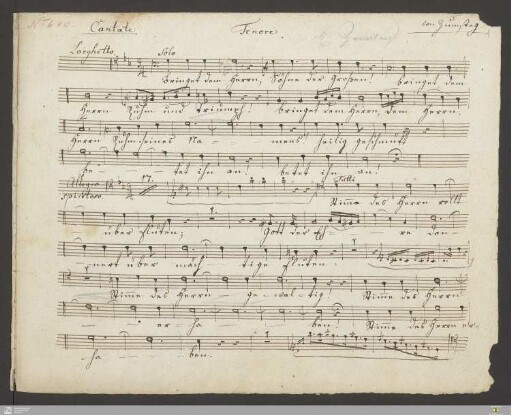 Cantate. Tenore. von Zumsteg
Larghetto. Solo
bringet dem Herrn, Söhne der Großen! bringet dem
Herrn Ruhm und Triumph! bringet dem Herrn, dem Herrn,
Herrn Ruhm seines Na- mens heilig geschmückt
be- tet ihn an! betet ihn an!
Allegro 17. Tutti
Stimme des Herrn rollt
über Fluten; Gott der Eh- re don-
nert über mäch- tige Fluten.
Stimme des Herrn ge- wal- tig! Stimme des Herrn
er- ha ben! Stime des Herrn er-
ha ben.